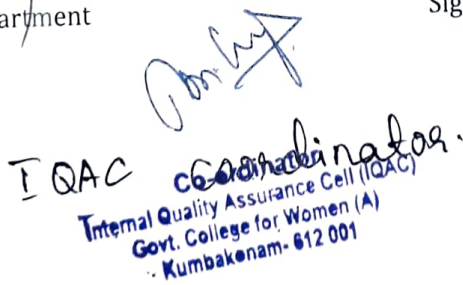 artment
Sig
IQAC Coordinator.
Co-ordinator
Internal Quality Assurance Cell (IQAC)
Govt. College for Women (A)
Kumbakonam- 612 001